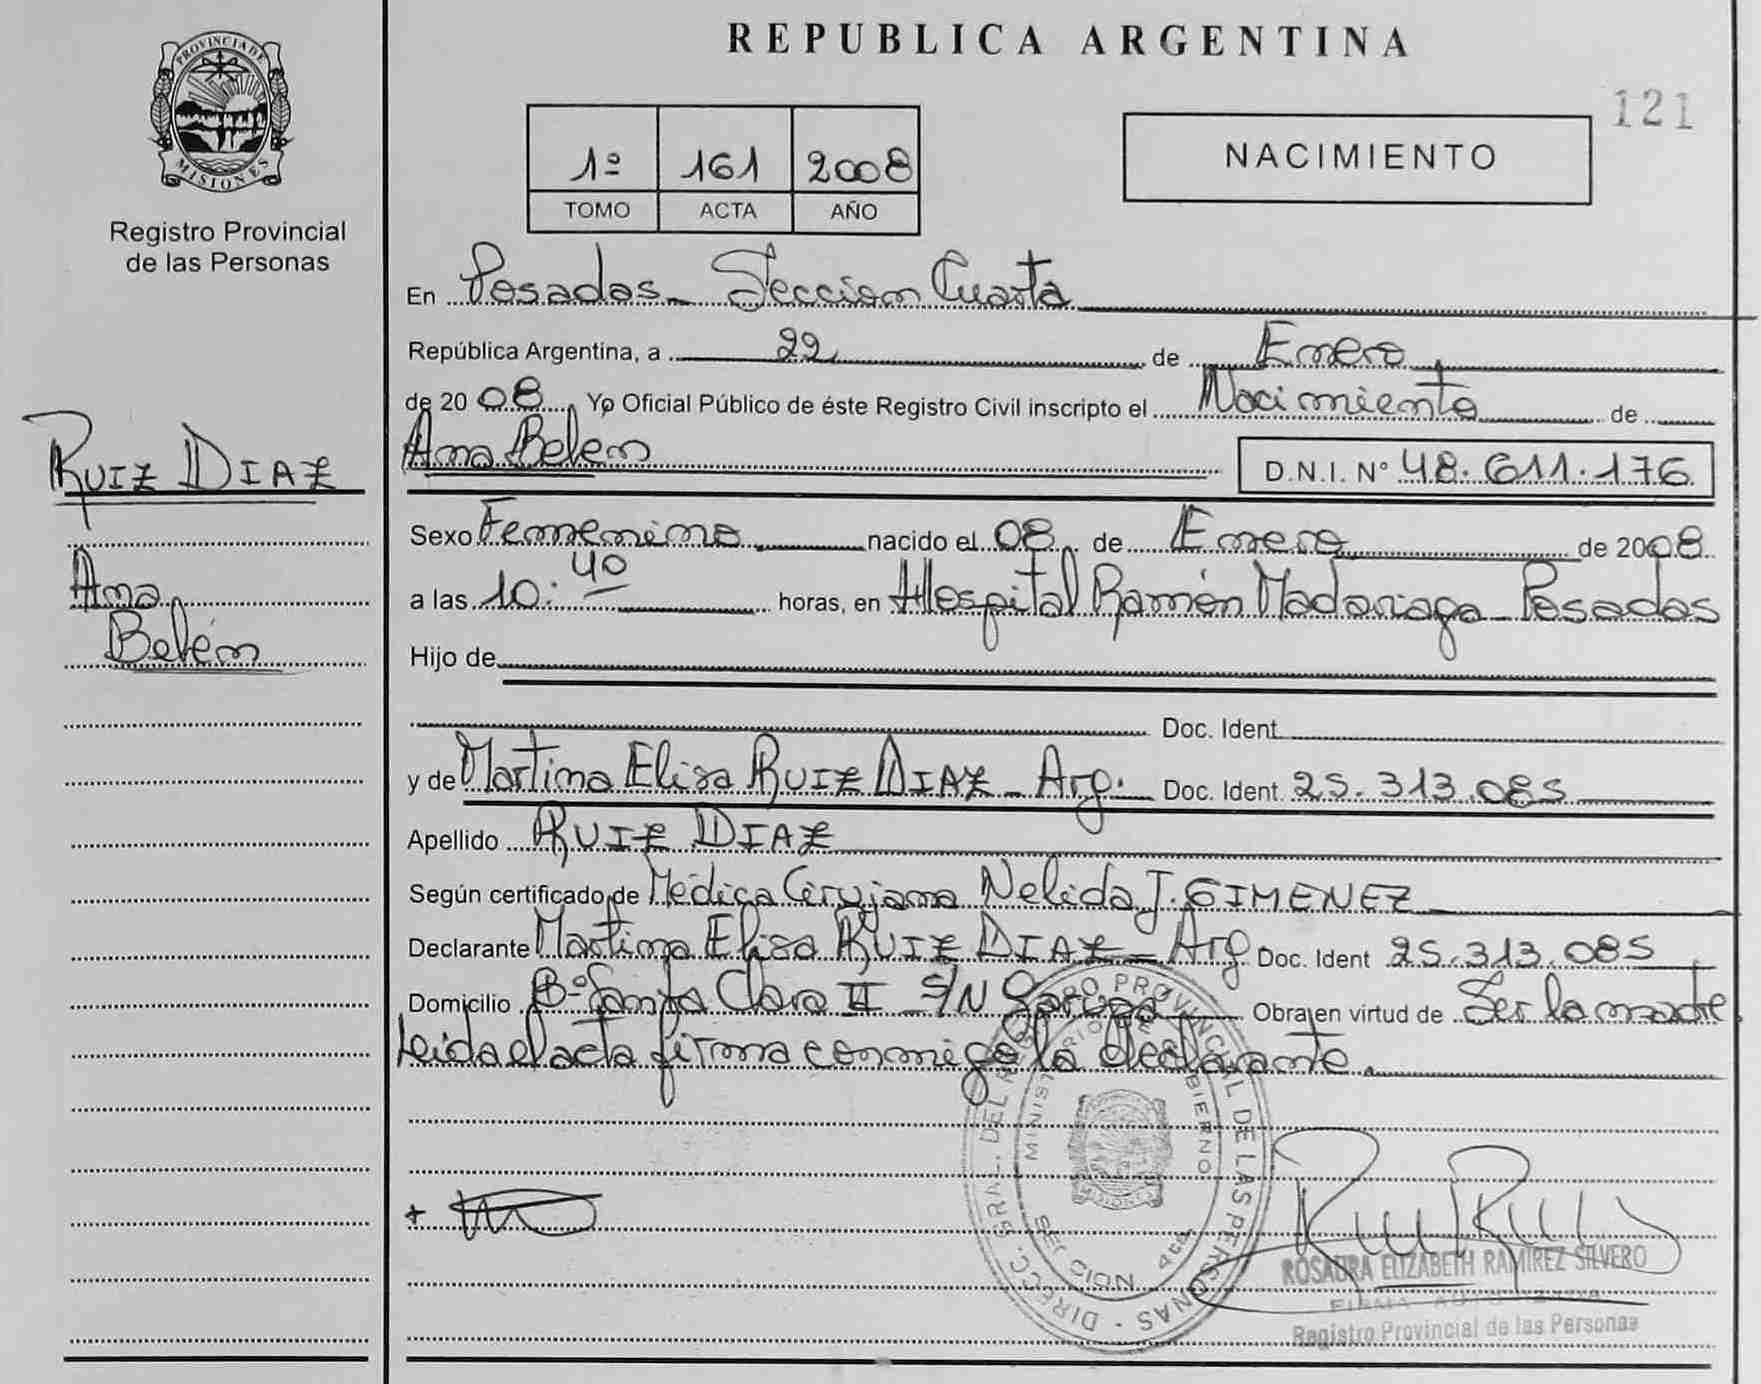 PROVINCIA DE
MISIONES
Registro Provincial
de las Personas
RUIZ DIAZ
Ana
Belén
REPUBLICA ARGENTINA
121
1º 161 2008
TOMO ACTA AÑO
NACIMIENTO
En Posadas - Sección Cuarta
República Argentina, a 22 de Enero
de 2008. Yo Oficial Público de éste Registro Civil inscripto el Nacimiento de
Ana Belén D.N.I. Nº 48.611.176
Sexo Femenino nacido el 08 de Enero de 2008
a las 10:40 horas, en Hospital Ramón Madariaga - Posadas
Hijo de
Doc. Ident.
y de Martina Elisa RUIZ DIAZ - Arg. Doc. Ident. 25.313.085
Apellido RUIZ DIAZ
Según certificado de Médica Cirujana Nelida J. GIMENEZ
Declarante Martina Elisa RUIZ DIAZ - Arg Doc. Ident 25.313.085
Domicilio Bº Santa Clara II S/N Garupá Obra en virtud de Ser la madre
leida el acta firma conmigo la declarante.
DIRECC. GRAL. DEL REGISTRO PROVINCIAL DE LAS PERSONAS
MINISTERIO DE GOBIERNO
SECCION 4ta
MISIONES
ROSAURA ELIZABETH RAMIREZ SILVERO
FIRMA AUTORIZADA
Registro Provincial de las Personas